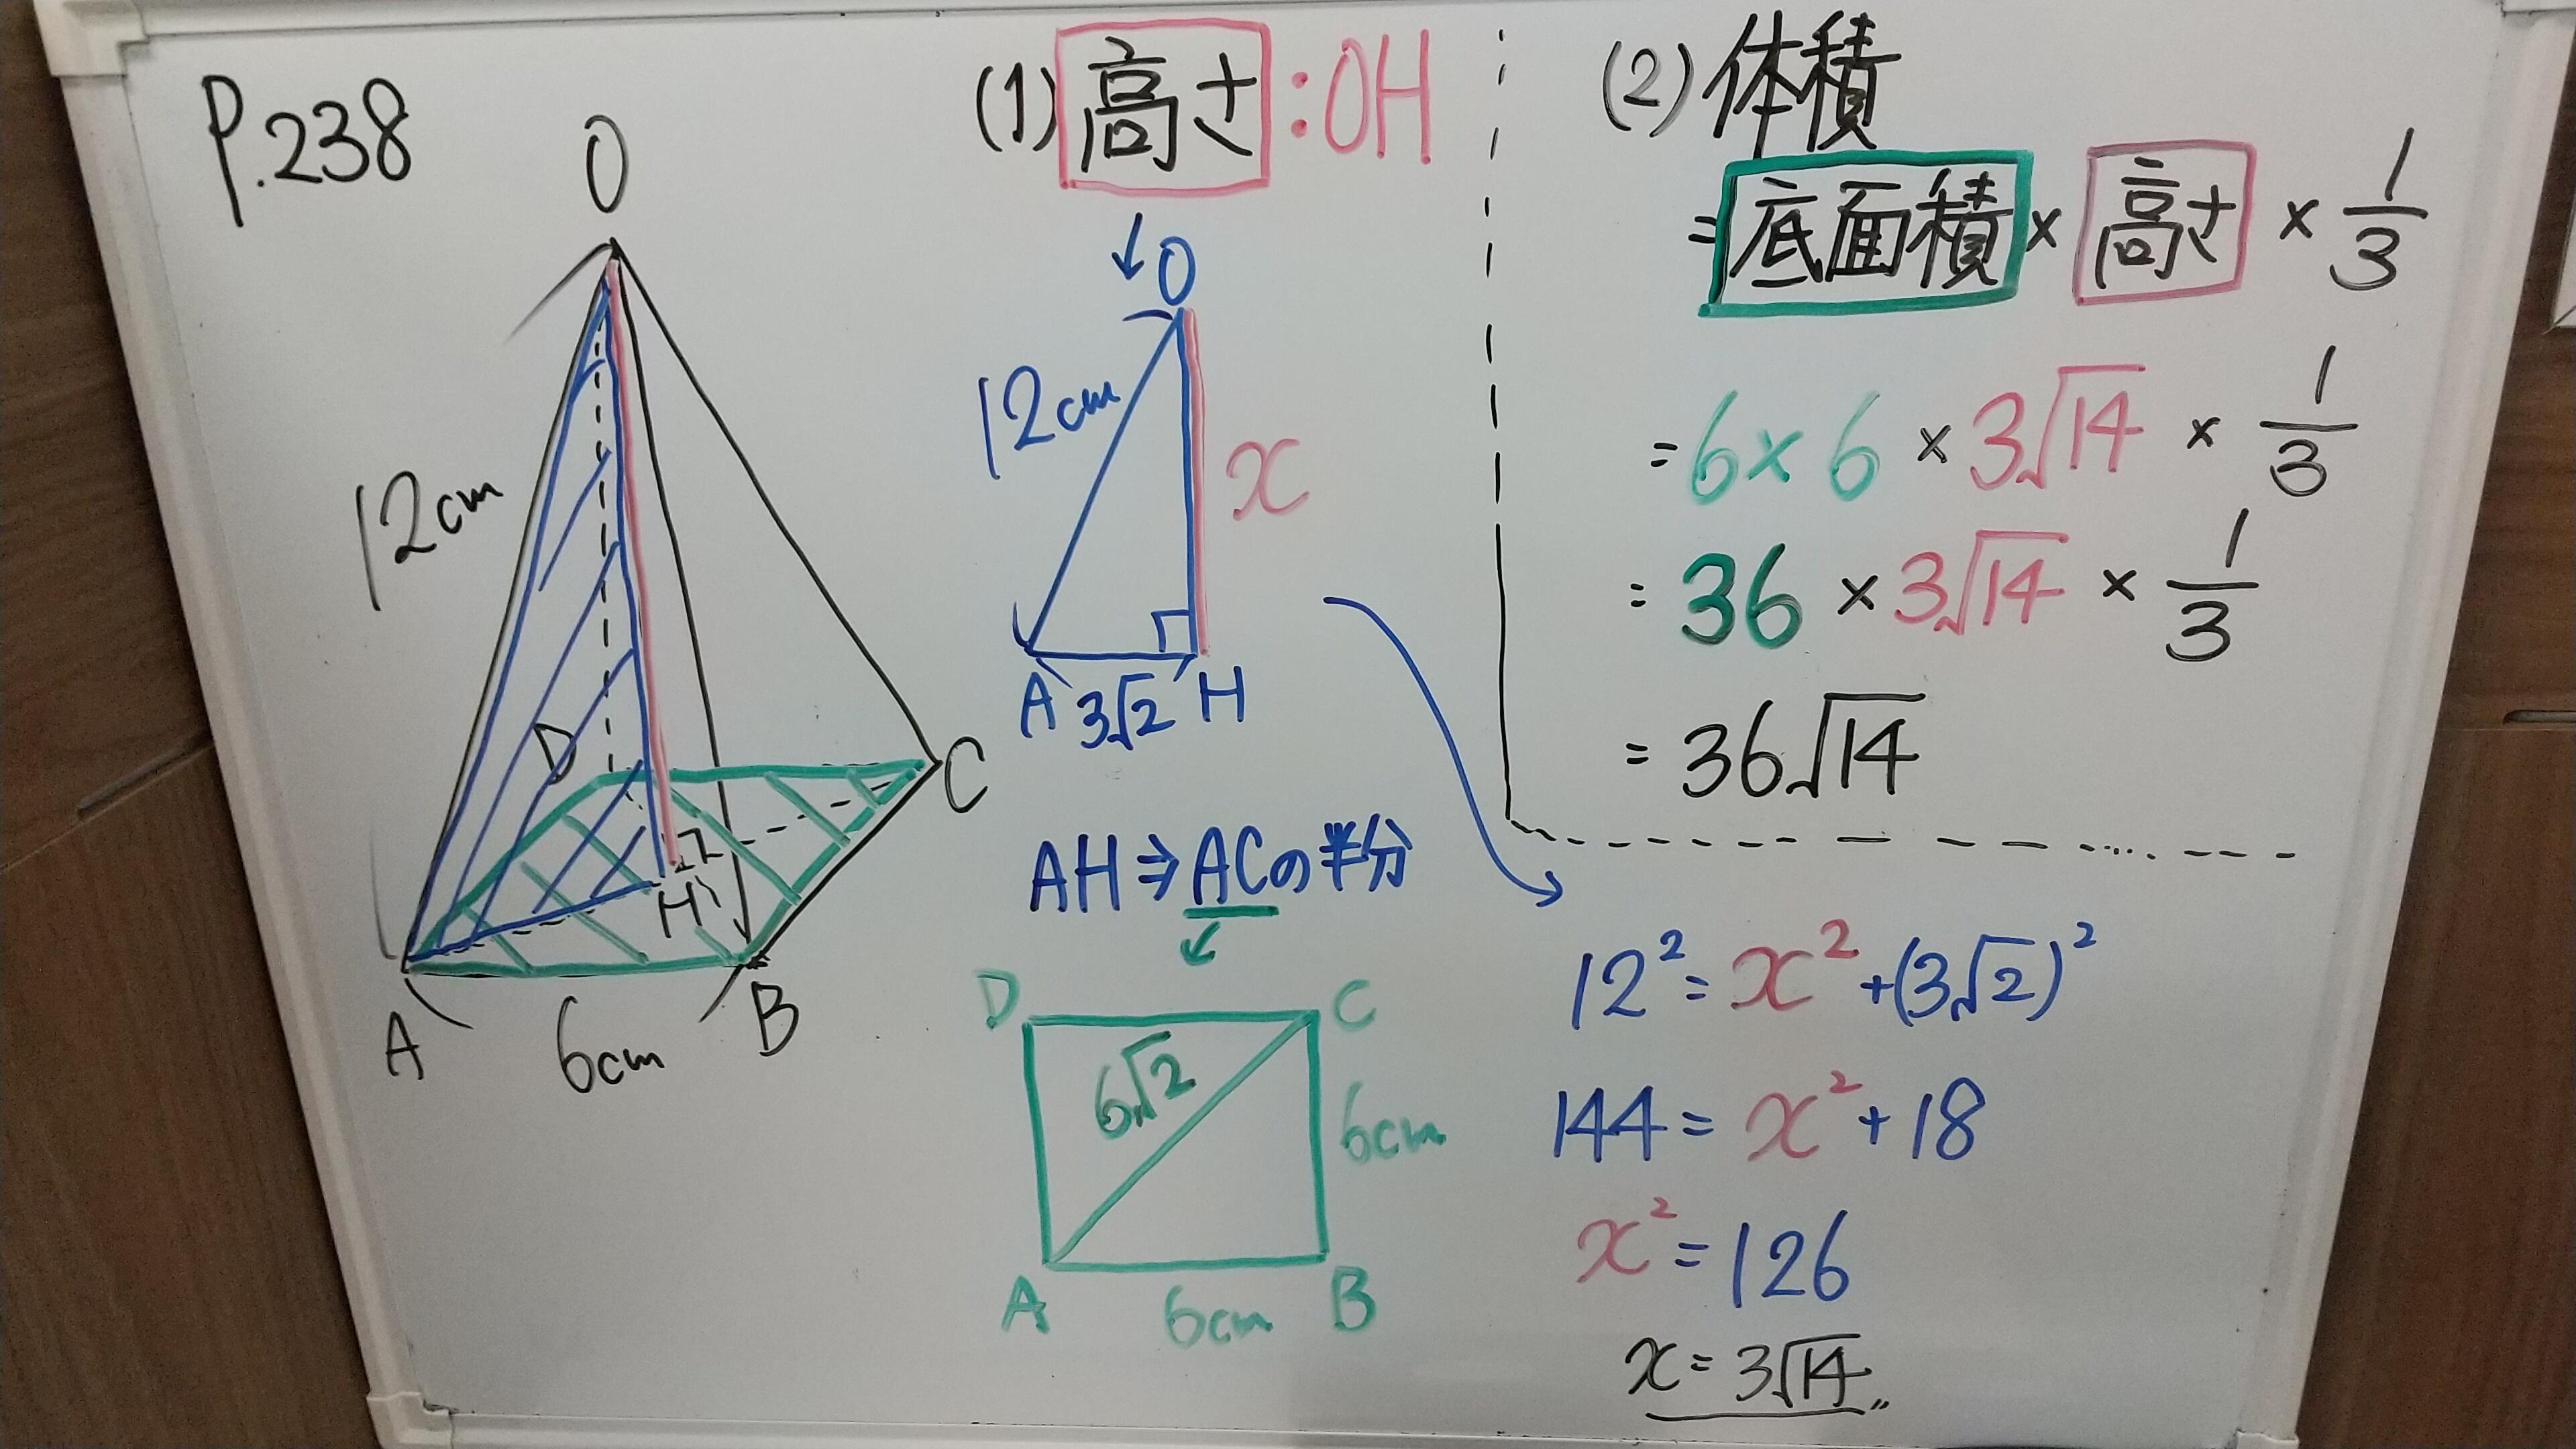 P.238
O
12cm
D
C
H
A
6cm
B
(1) 高さ:OH
O
12cm
x
A 3√2 H
AH⇒ACの半分
D C
6√2
6cm
A 6cm B
(2) 体積
=底面積×高さ×1/3
=6×6×3√14×1/3
=36×3√14×1/3
=36√14
12²=x²+(3√2)²
144=x²+18
x²=126
x=3√14〃